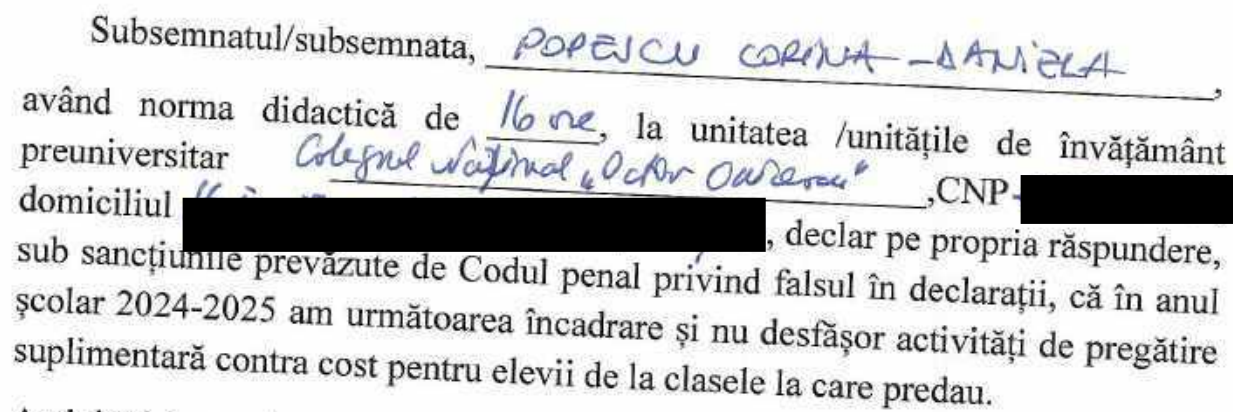 Subsemnatul/subsemnata, POPESCU CORINA-DANIELA,
având norma didactică de 16 ore, la unitatea /unitățile de învățământ
preuniversitar Colegiul Național „Octav Onicescu" ,CNP-
domiciliul , declar pe propria răspundere,
sub sancțiunile prevăzute de Codul penal privind falsul în declarații, că în anul
școlar 2024-2025 am următoarea încadrare și nu desfășor activități de pregătire
suplimentară contra cost pentru elevii de la clasele la care predau.